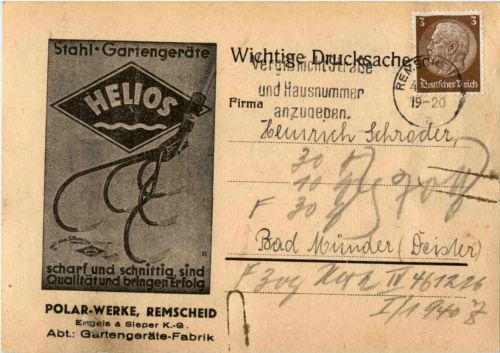 Stahl-Gartengeräte
HELIOS
scharf und schnittig, sind
Qualität und bringen Erfolg
POLAR-WERKE, REMSCHEID
Engels & Sieper K.-G.
Abt.: Gartengeräte-Fabrik
3 3
Deutsches Reich
Wichtige Drucksache
Vergiß nicht Straße
und Hausnummer
anzugeben.
REMS
19-20
Firma
Heinrich Schröder,
30
10
F 30
Bad Münder (Deister)
F 30 IV 461226
I/1940